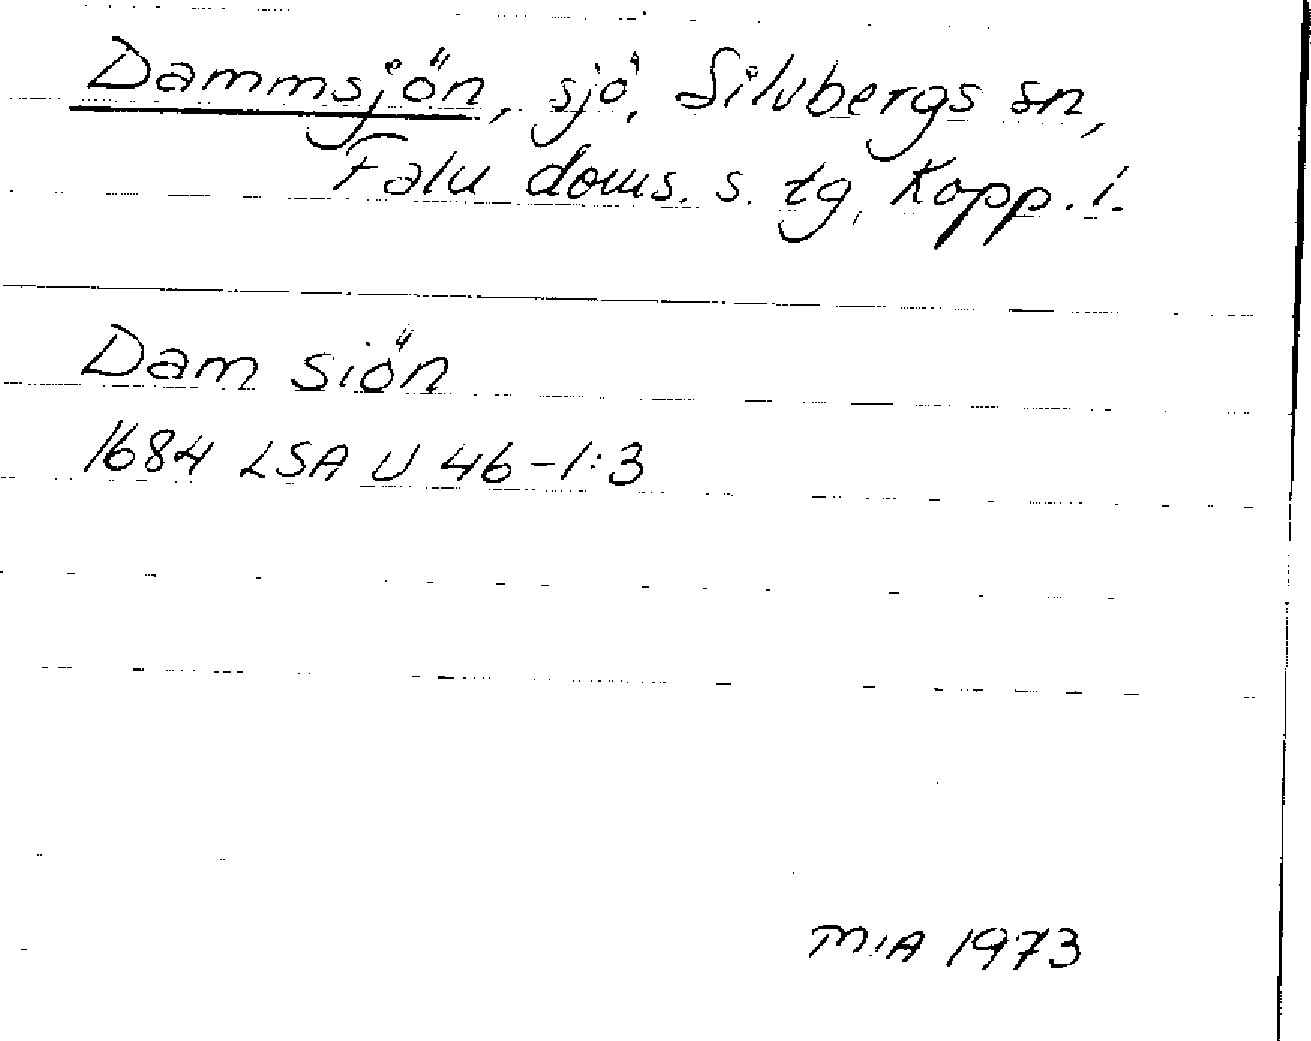 Dammsjön, sjö, Silvbergs sn,
Falu doms. s. tg, Kopp. l.
Dam siön
1684 LSA U 46-1:3
MIA 1973